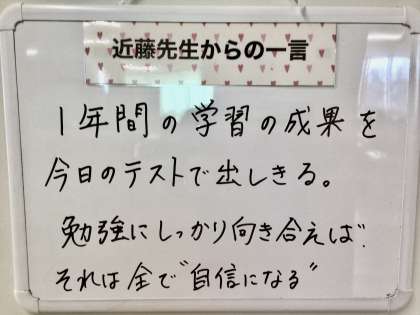 近藤先生からの一言
1年間の学習の成果を
今日のテストで出しきる。
勉強にしっかり向き合えば
それは全て"自信になる"